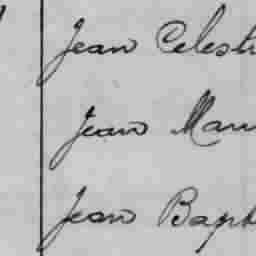 Jean Celest
Jean Mau
Jean Bapt